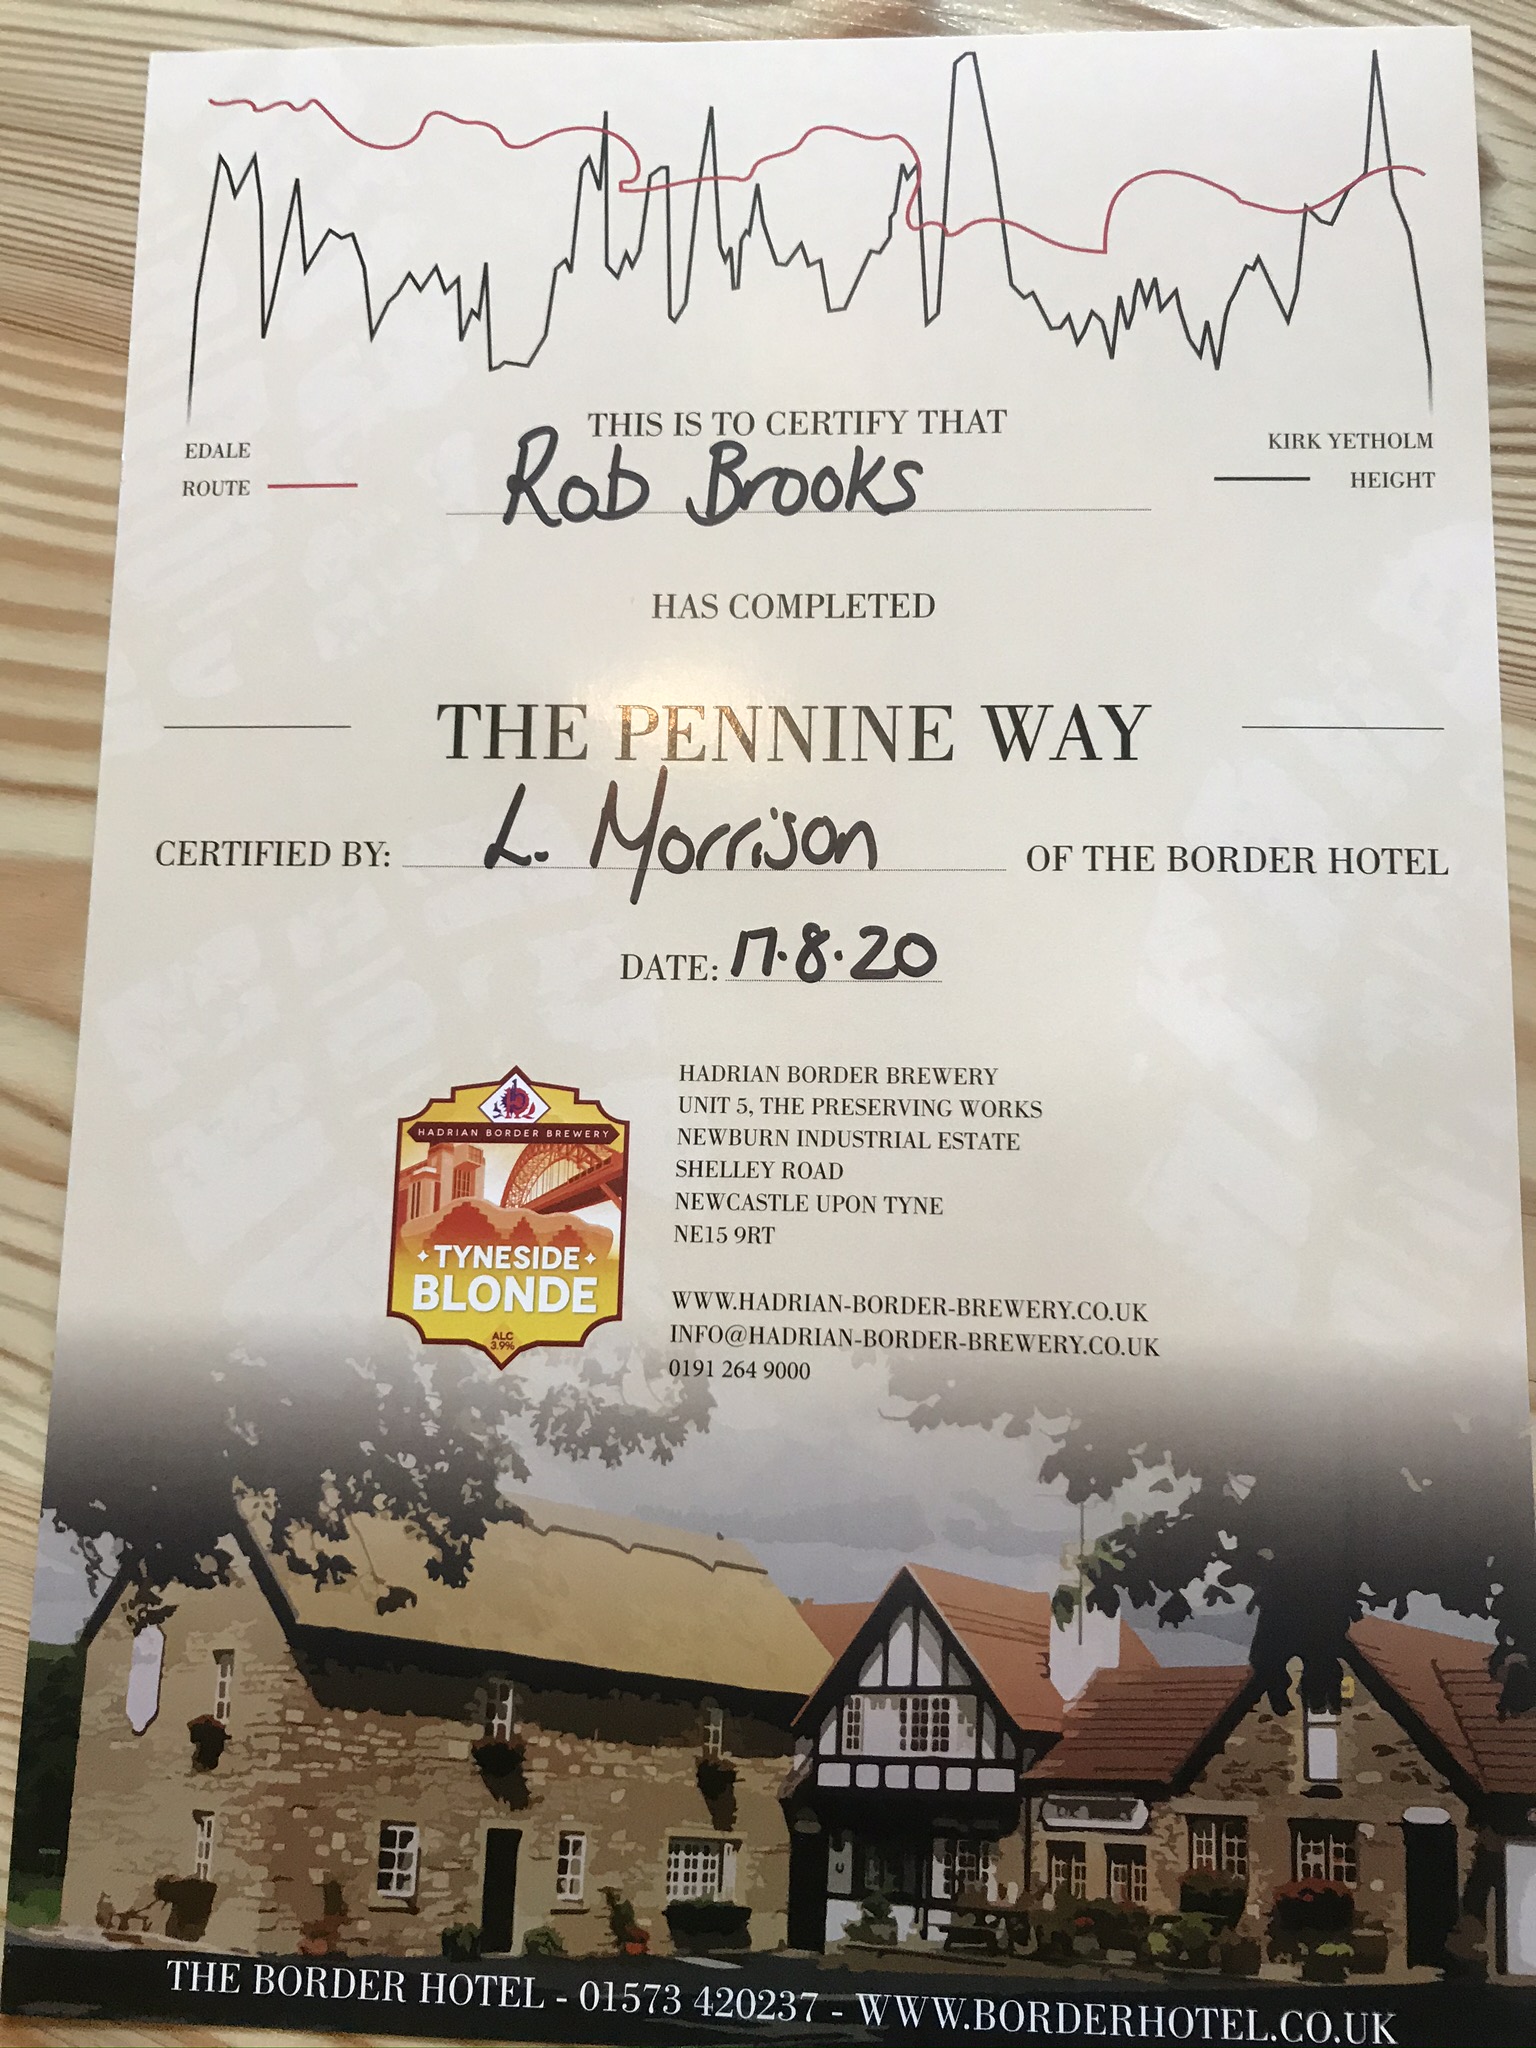 THIS IS TO CERTIFY THAT
EDALE
KIRK YETHOLM
ROUTE
HEIGHT
Rob Brooks
HAS COMPLETED
THE PENNINE WAY
CERTIFIED BY: L. Morrison OF THE BORDER HOTEL
DATE: 17.8.20
HADRIAN BORDER BREWERY
TYNESIDE
BLONDE
ALC
3.9%
HADRIAN BORDER BREWERY
UNIT 5, THE PRESERVING WORKS
NEWBURN INDUSTRIAL ESTATE
SHELLEY ROAD
NEWCASTLE UPON TYNE
NE15 9RT
WWW.HADRIAN-BORDER-BREWERY.CO.UK
INFO@HADRIAN-BORDER-BREWERY.CO.UK
0191 264 9000
THE BORDER HOTEL - 01573 420237 - WWW.BORDERHOTEL.CO.UK